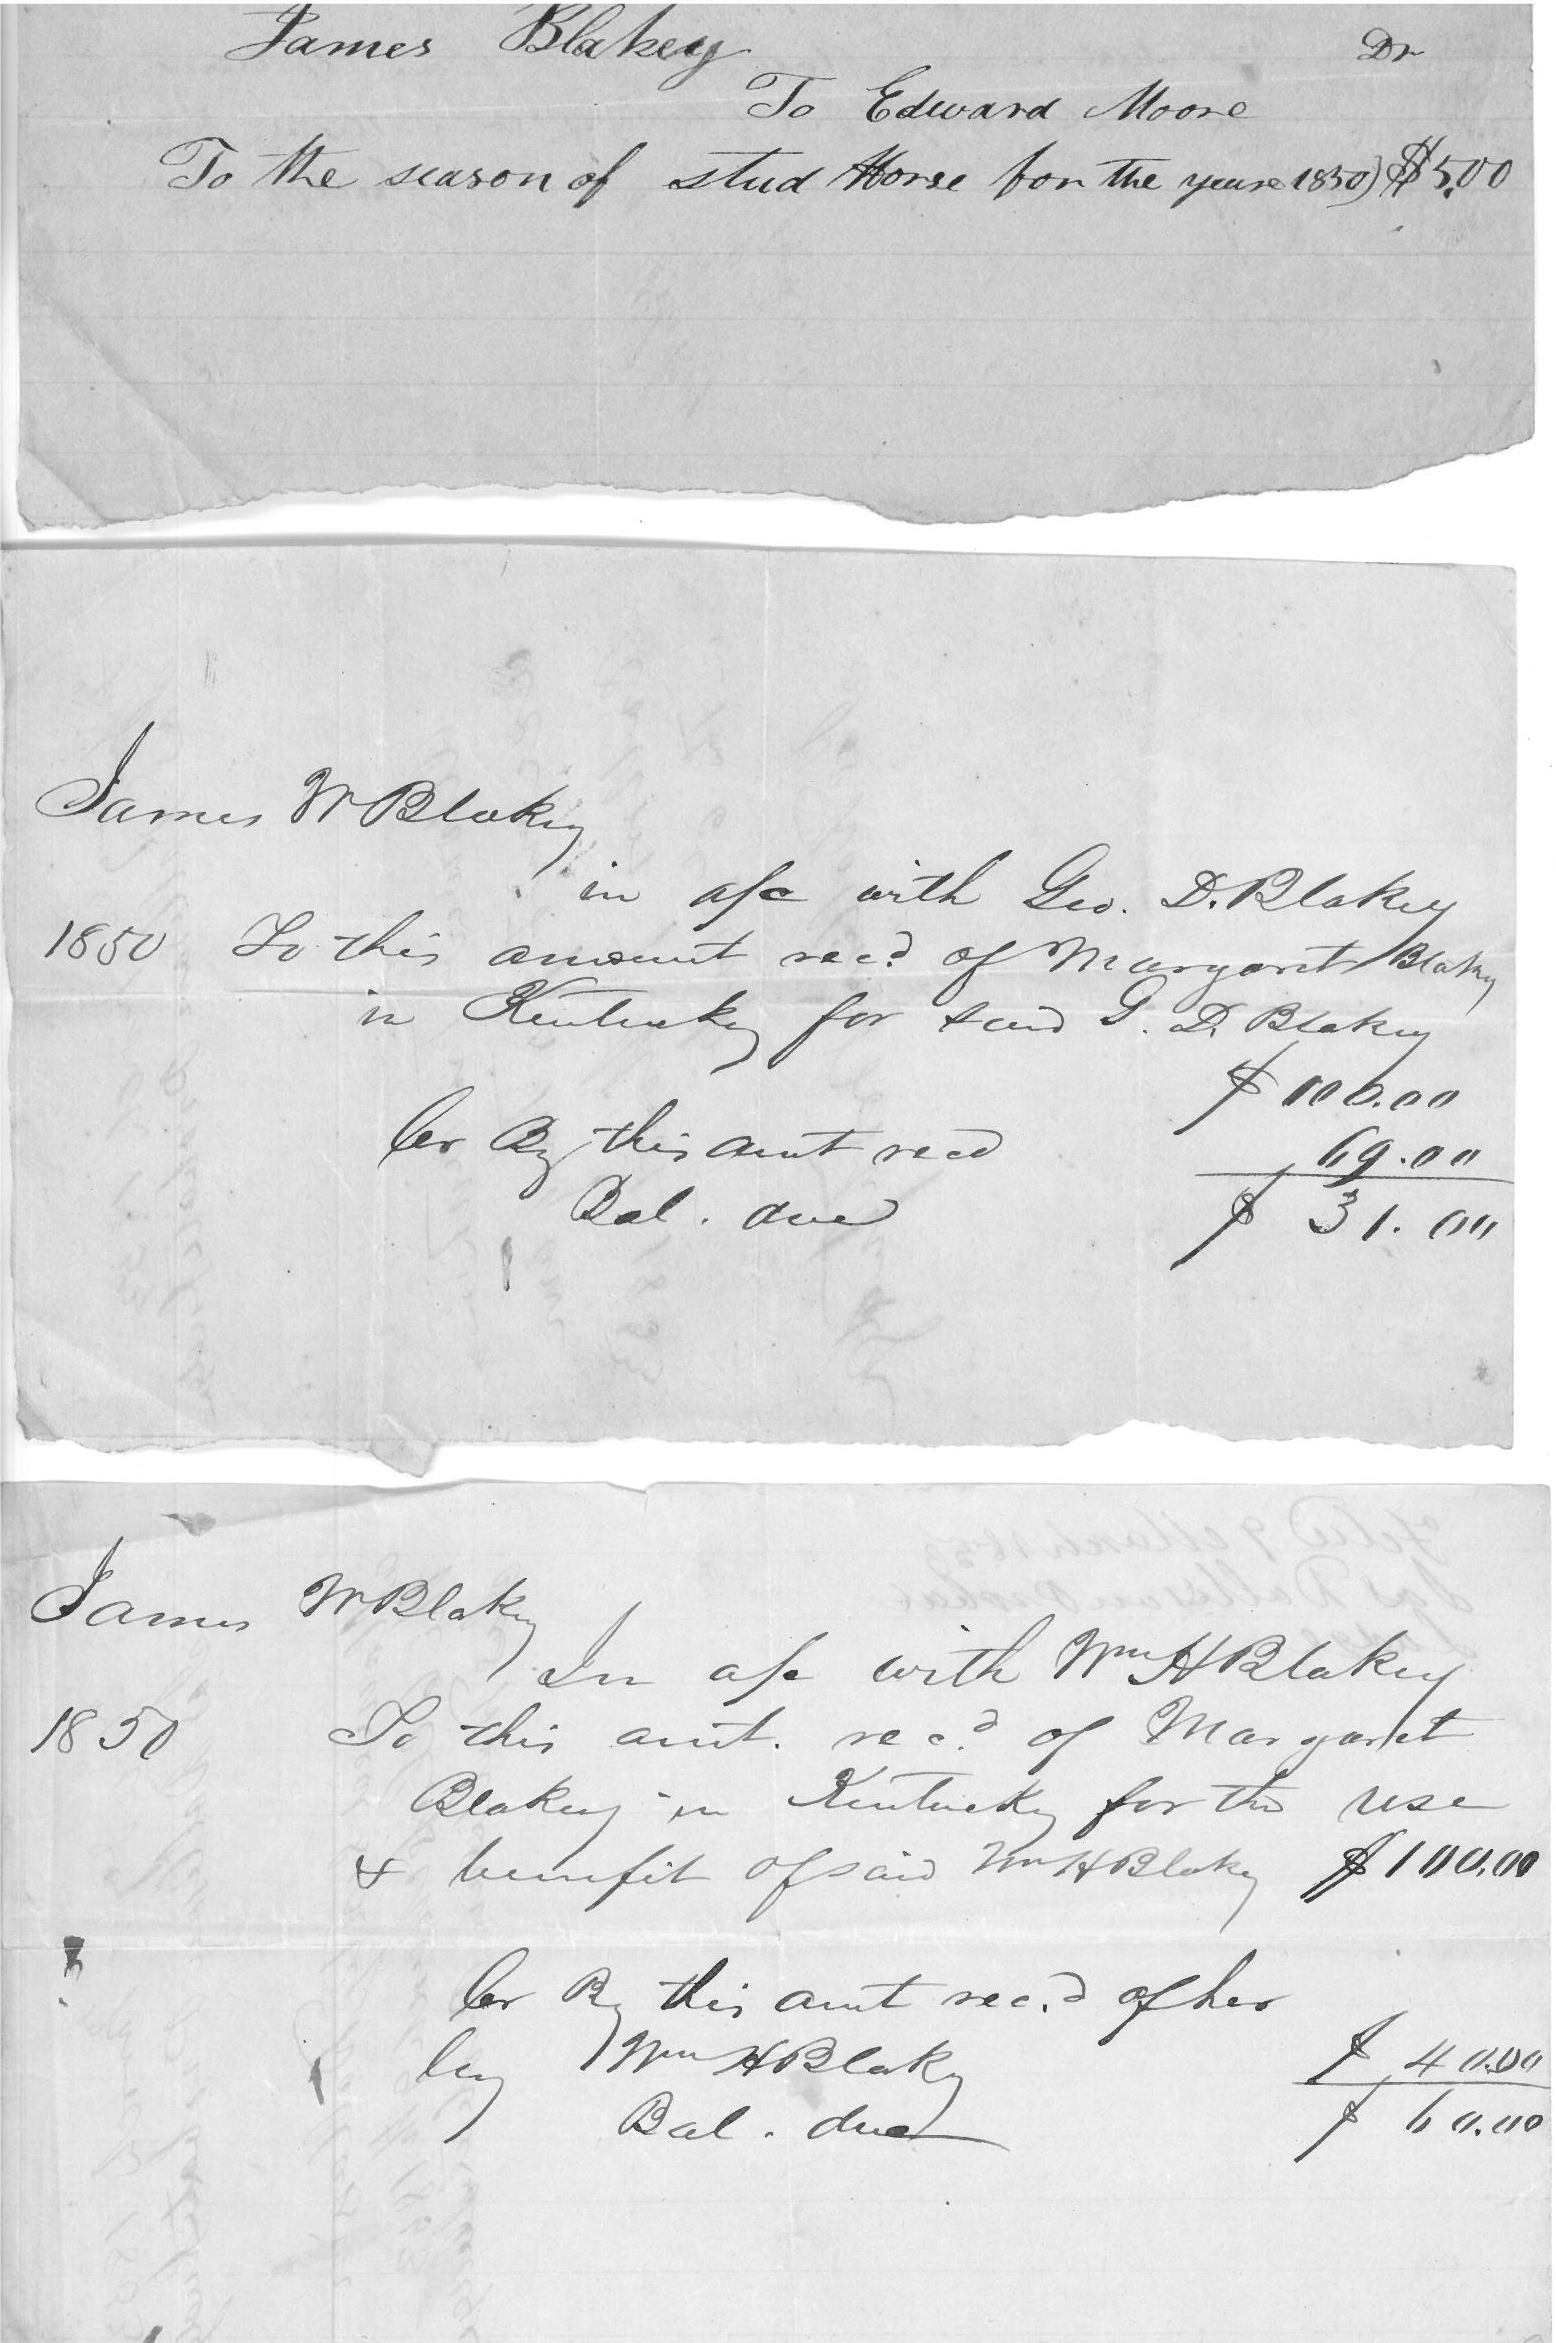 James Blakey Dr
To Edward Moore
To the season of stud Horse for the year 1850) $5.00
James W Blakey
in a/c with Geo. D. Blakey
1850 To this amount recd of Margaret Blakey
in Kentucky for said G. D. Blakey
$100.00
Cr By this amt recd 69.00
Bal. due $31.00
James W Blakey
In a/c with Wm H Blakey
1850 To this amt. recd of Margaret
Blakey in Kentucky for the use
& benefit of said Wm H Blakey $100.00
Cr By this amt rec.d of her
by Wm H Blakey $40.00
Bal. due $60.00